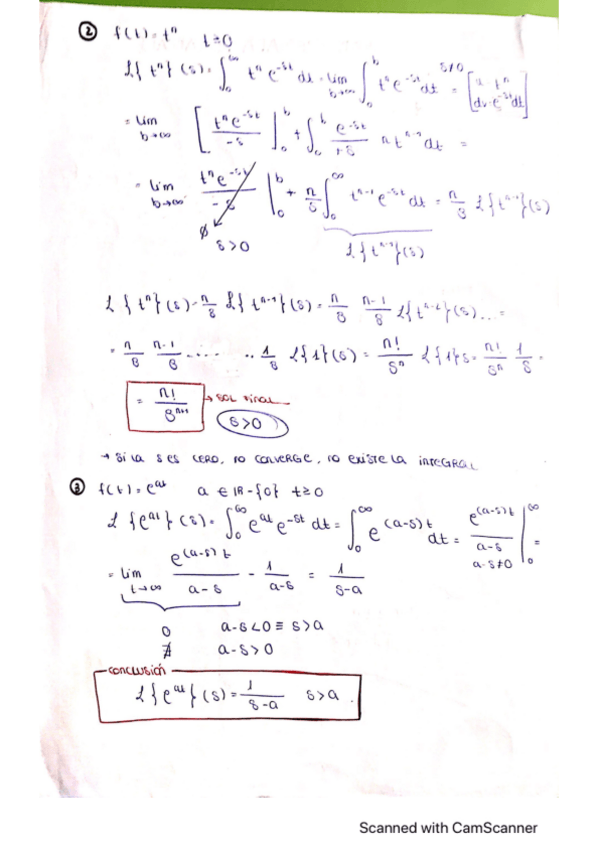 ② f(t)=tⁿ t≥0
ℒ{tⁿ}(s)=∫₀^∞ tⁿ e^{-st} dt = lim_{b→∞} ∫₀^b tⁿ e^{-st} dt =^{s≠0} [u=tⁿ dv=e^{-st}dt]
= lim_{b→∞} [tⁿe^{-st}/-s]₀^b + ∫₀^b e^{-st}/+s n tⁿ⁻¹ dt =
= lim_{b→∞} tⁿe^{-st}/-s |₀^b + n/s ∫₀^∞ tⁿ⁻¹ e^{-st} dt = n/s ℒ{tⁿ⁻¹}(s)
0
s>0 ℒ{tⁿ⁻¹}(s)
ℒ{tⁿ}(s)=n/s ℒ{tⁿ⁻¹}(s)= n/s n-1/s ℒ{tⁿ⁻²}(s)... =
= n/s n-1/s ........ 1/s ℒ{1}(s) = n!/sⁿ ℒ{1}s = n!/sⁿ 1/s.
= n!/sⁿ⁺¹ → SOL FINAL
s>0
→ SI LA S ES CERO, NO CONVERGE, NO EXISTE LA INTEGRAL
③ f(t)=e^{at} a ∈ ℝ-{0} t≥0
ℒ{e^{at}}(s)=∫₀^∞ e^{at} e^{-st} dt = ∫₀^∞ e^{(a-s)t} dt = e^{(a-s)t}/a-s |₀^∞ =
a-s≠0
= lim_{t→∞} e^{(a-s)t}/a-s - 1/a-s = 1/s-a
0 a-s<0 ≡ s>a
∄ a-s>0
CONCLUSIÓN
ℒ{e^{at}}(s)=1/s-a s>a.
Scanned with CamScanner